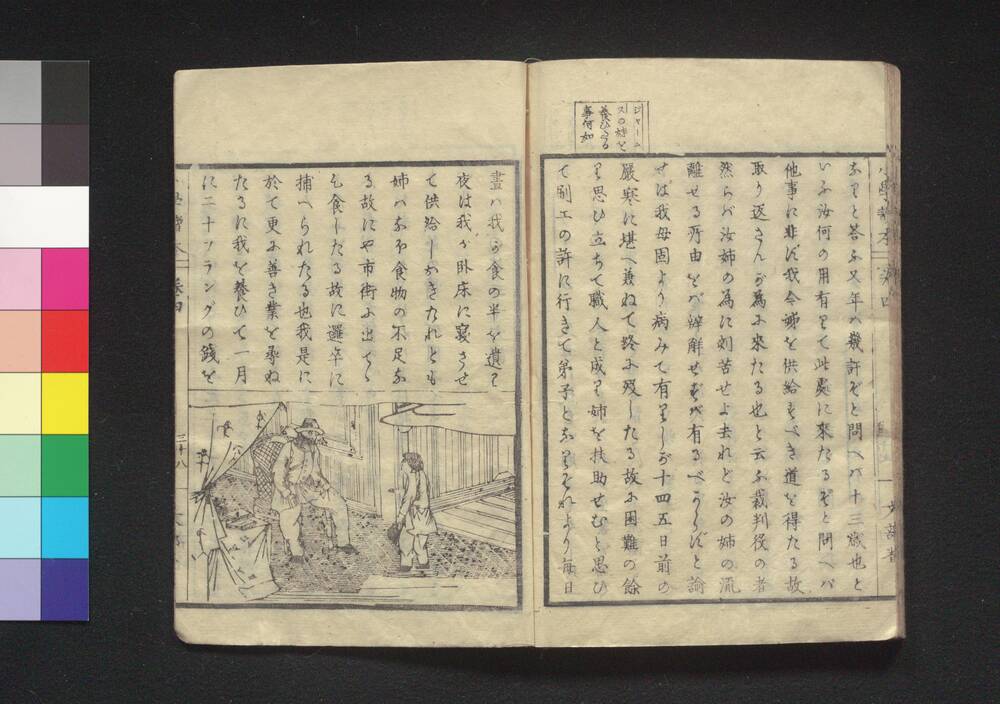 ジャーム
スの姉を
養ひたる
事何如
なりと答ふ又年ハ幾許ぞと問へバ十三歳也と
いふ汝何の用有りて此處に來たるぞと問へバ
他事に非ず我今姉を供給すべき道を得たる故
取り返さんが爲に來たる也と云ふ裁判役の者
然らバ汝姉の為に刻苦せよ去れど汝の姉の流
離せる所由をバ辨解せずバ有るべからずと諭
せば我母固より病みて有りしが十四五日前の
嚴寒に堪へ兼ねて終に歿したる故に困難の餘
り思ひ立ちて職人と成り姉を扶助せむと思ひ
て刷工の許に行きて弟子となりそれより毎日
晝ハ我が食の半を遺り
夜は我が卧床に寢させ
て供給しおきたれとも
姉ハなほ食物の不足な
る故にや市街に出でゝ
乞食したる故に邏卒に
捕へられたる也我是に
於て更に善き業を尋ね
たるに我を養ひて一月
に二十フラングの錢を
巻四
三十八